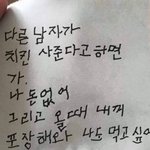 다른 남자가
치킨 사준다고 하면
가.
나 돈 없어
그리고 올때 내꺼
포장해와 나도 먹고 싶어